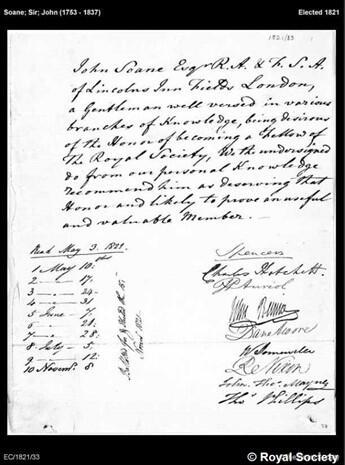 Soane; Sir; John (1753 - 1837)
Elected 1821
1821/33
John Soane Esqr. R.A. & F.S.A.
of Lincolns Inn Fields London,
a Gentleman well versed in various
branches of Knowledge, being desirous
of the Honor of becoming a Fellow of
the Royal Society, We the undersigned
do from our personal Knowledge
recommend him as deserving that
Honor and likely to prove an useful
and valuable Member.
Read May 3. 1821.
1 May 10th
2 — 17.
3 — 24
4 — 31
5 June 7
6 — 21
7 — 28
8 July 5.
9 — 12.
10 Novemr. 8
Ballotted for & Elected the 15.
Novr. 1821.
Spencer
Charles Hatchett.
Auriol
John Rennie
Dan Moore
W Somerville
R Nixon
John Thos. Mayne
Thos. Phillips
EC/1821/33
© Royal Society